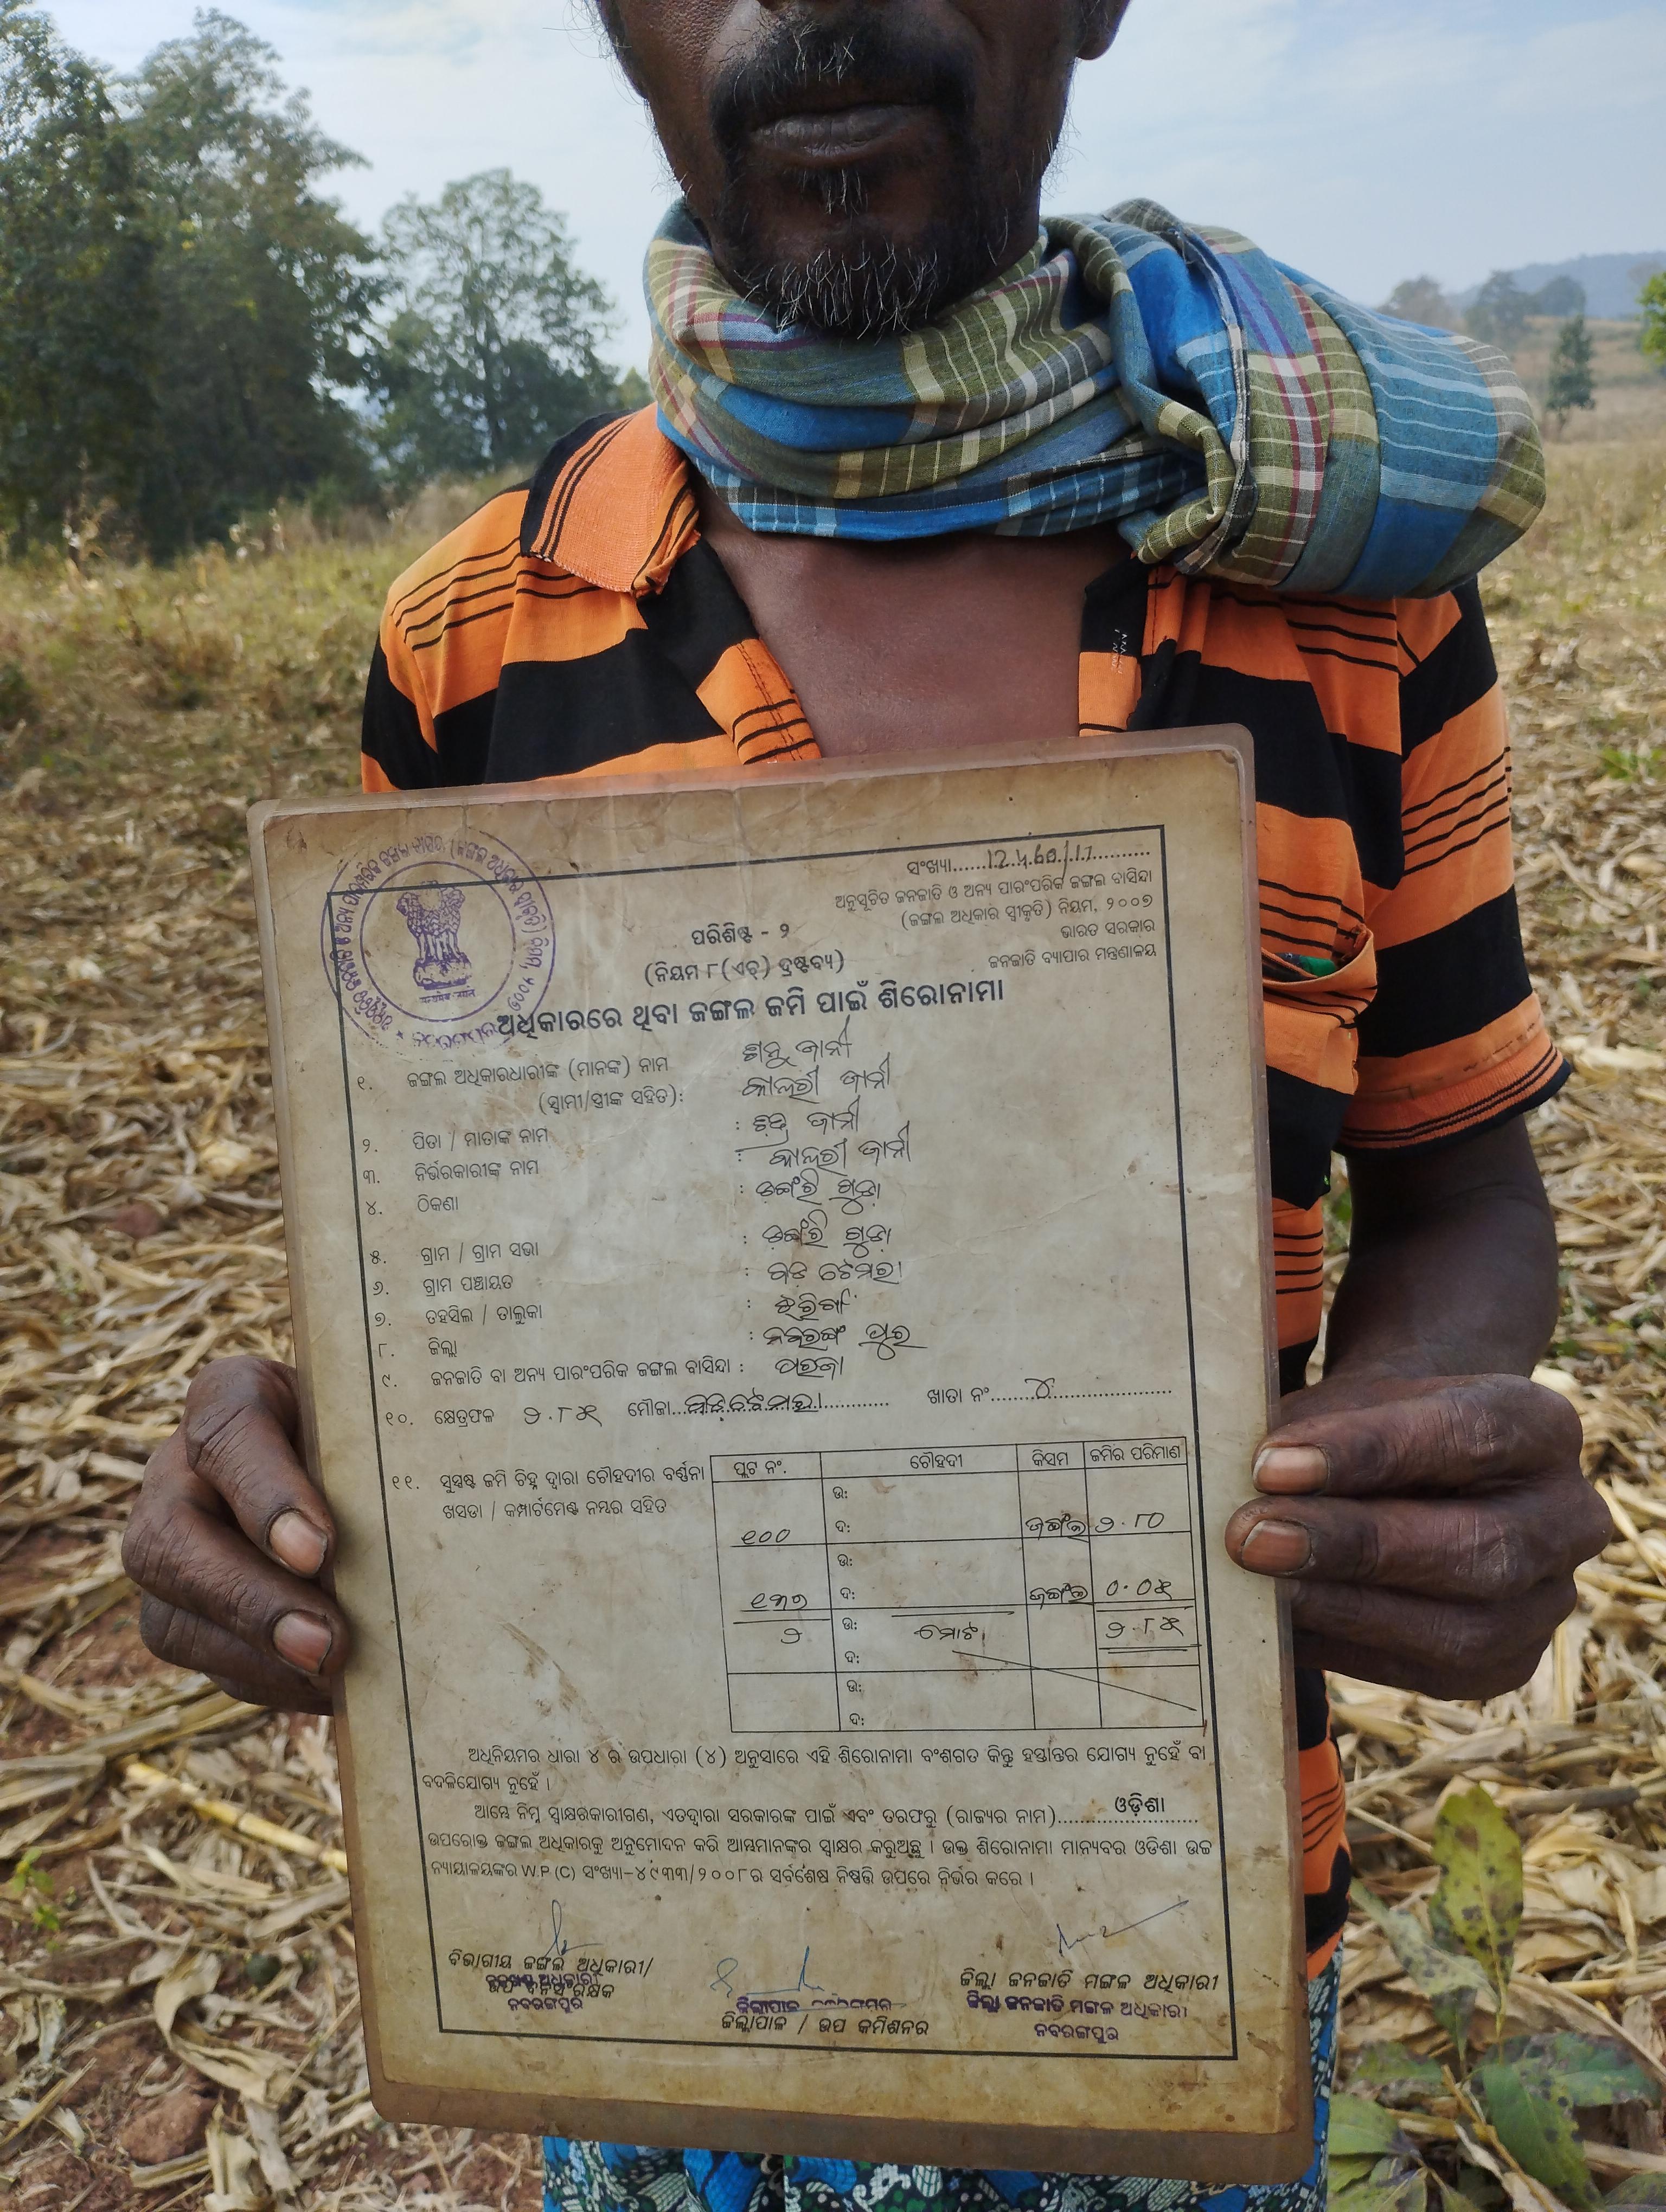 ସଂଖ୍ୟା
ଅନୁସୂଚିତ ଜନଜାତି ଓ ଅନ୍ୟ ପାରଂପରିକ ଜଙ୍ଗଲ ବାସିନ୍ଦା
(ଜଙ୍ଗଲ ଅଧିକାର ସ୍ୱୀକୃତି) ନିୟମ, ୨୦୦୭
ଭାରତ ସରକାର
ଜନଜାତି ବ୍ୟାପାର ମନ୍ତ୍ରଣାଳୟ
ପରିଶିଷ୍ଟ - ୨
(ନିୟମ ୮(ଏଚ୍) ଦ୍ରଷ୍ଟବ୍ୟ)
ଅଧିକାରରେ ଥିବା ଜଙ୍ଗଲ ଜମି ପାଇଁ ଶିରୋନାମା
୧. ଜଙ୍ଗଲ ଅଧିକାରଧାରୀଙ୍କ (ମାନଙ୍କ) ନାମ ଜାନୀ
(ସ୍ୱାମୀ/ସ୍ତ୍ରୀଙ୍କ ସହିତ): ଜାନୀ
୨. ପିତା / ମାତାଙ୍କ ନାମ : ଜାନୀ
୩. ନିର୍ଭରକାରୀଙ୍କ ନାମ : ଜାନୀ
୪. ଠିକଣା : ଡଙ୍ଗରି ଗୁଡା
୫. ଗ୍ରାମ / ଗ୍ରାମ ସଭା : ଡଙ୍ଗରି ଗୁଡା
୬. ଗ୍ରାମ ପଞ୍ଚାୟତ : ବଡ ଟେମରା
୭. ତହସିଲ / ତାଲୁକା : ଝରିଗାଁ
୮. ଜିଲ୍ଲା : ନବରଙ୍ଗ ପୁର
୯. ଜନଜାତି ବା ଅନ୍ୟ ପାରଂପରିକ ଜଙ୍ଗଲ ବାସିନ୍ଦା : ପରଜା
୧୦. କ୍ଷେତ୍ରଫଳ ୨.୮୫ ମୌଜା ବଡ଼ଟେମରା ଖାତା ନଂ. ୪
୧୧. ସୁସ୍ପଷ୍ଟ ଜମି ଚିହ୍ନ ଦ୍ୱାରା ଚୌହଦୀର ବର୍ଣ୍ଣନା
ଖସଡା / କମ୍ପାର୍ଟମେଣ୍ଟ ନମ୍ବର ସହିତ
ପ୍ଲଟ ନଂ. ଚୌହଦୀ କିସମ ଜମିର ପରିମାଣ
ଉ:
୧୦୦ ଦ: ଜଙ୍ଗଲ ୨.୮୦
ଉ:
୧୩୨ ଦ: ଜଙ୍ଗଲ ୦.୦୫
୨ ଉ: ମୋଟ ୨.୮୫
ଦ:
ଉ:
ଦ:
ଅଧିନିୟମର ଧାରା ୪ ର ଉପଧାରା (୪) ଅନୁସାରେ ଏହି ଶିରୋନାମା ବଂଶଗତ କିନ୍ତୁ ହସ୍ତାନ୍ତର ଯୋଗ୍ୟ ନୁହେଁ ବା
ବଦଳିଯୋଗ୍ୟ ନୁହେଁ ।
ଆମ୍ଭେ ନିମ୍ନ ସ୍ୱାକ୍ଷରକାରୀଗଣ, ଏତଦ୍ୱାରା ସରକାରଙ୍କ ପାଇଁ ଏବଂ ତରଫରୁ (ରାଜ୍ୟର ନାମ) ଓଡ଼ିଶା
ଉପରୋକ୍ତ ଜଙ୍ଗଲ ଅଧିକାରକୁ ଅନୁମୋଦନ କରି ଆମ୍ଭମାନଙ୍କର ସ୍ୱାକ୍ଷର କରୁଅଛୁ । ଉକ୍ତ ଶିରୋନାମା ମାନ୍ୟବର ଓଡିଶା ଉଚ୍ଚ
ନ୍ୟାୟାଳୟଙ୍କର W.P (C) ସଂଖ୍ୟା-୪୯୩୩/୨୦୦୮ର ସର୍ବଶେଷ ନିଷ୍ପତ୍ତି ଉପରେ ନିର୍ଭର କରେ ।
ବିଭାଗୀୟ ଜଙ୍ଗଲ ଅଧିକାରୀ/
ଉପ ବନସଂରକ୍ଷକ
ନବରଙ୍ଗପୁର
ଜିଲ୍ଲାପାଳ
ଜିଲ୍ଲାପାଳ / ଉପ କମିଶନର
ଜିଲ୍ଲା ଜନଜାତି ମଙ୍ଗଳ ଅଧିକାରୀ
ଜିଲ୍ଲା ଜନଜାତି ମଙ୍ଗଳ ଅଧିକାରୀ
ନବରଙ୍ଗପୁର